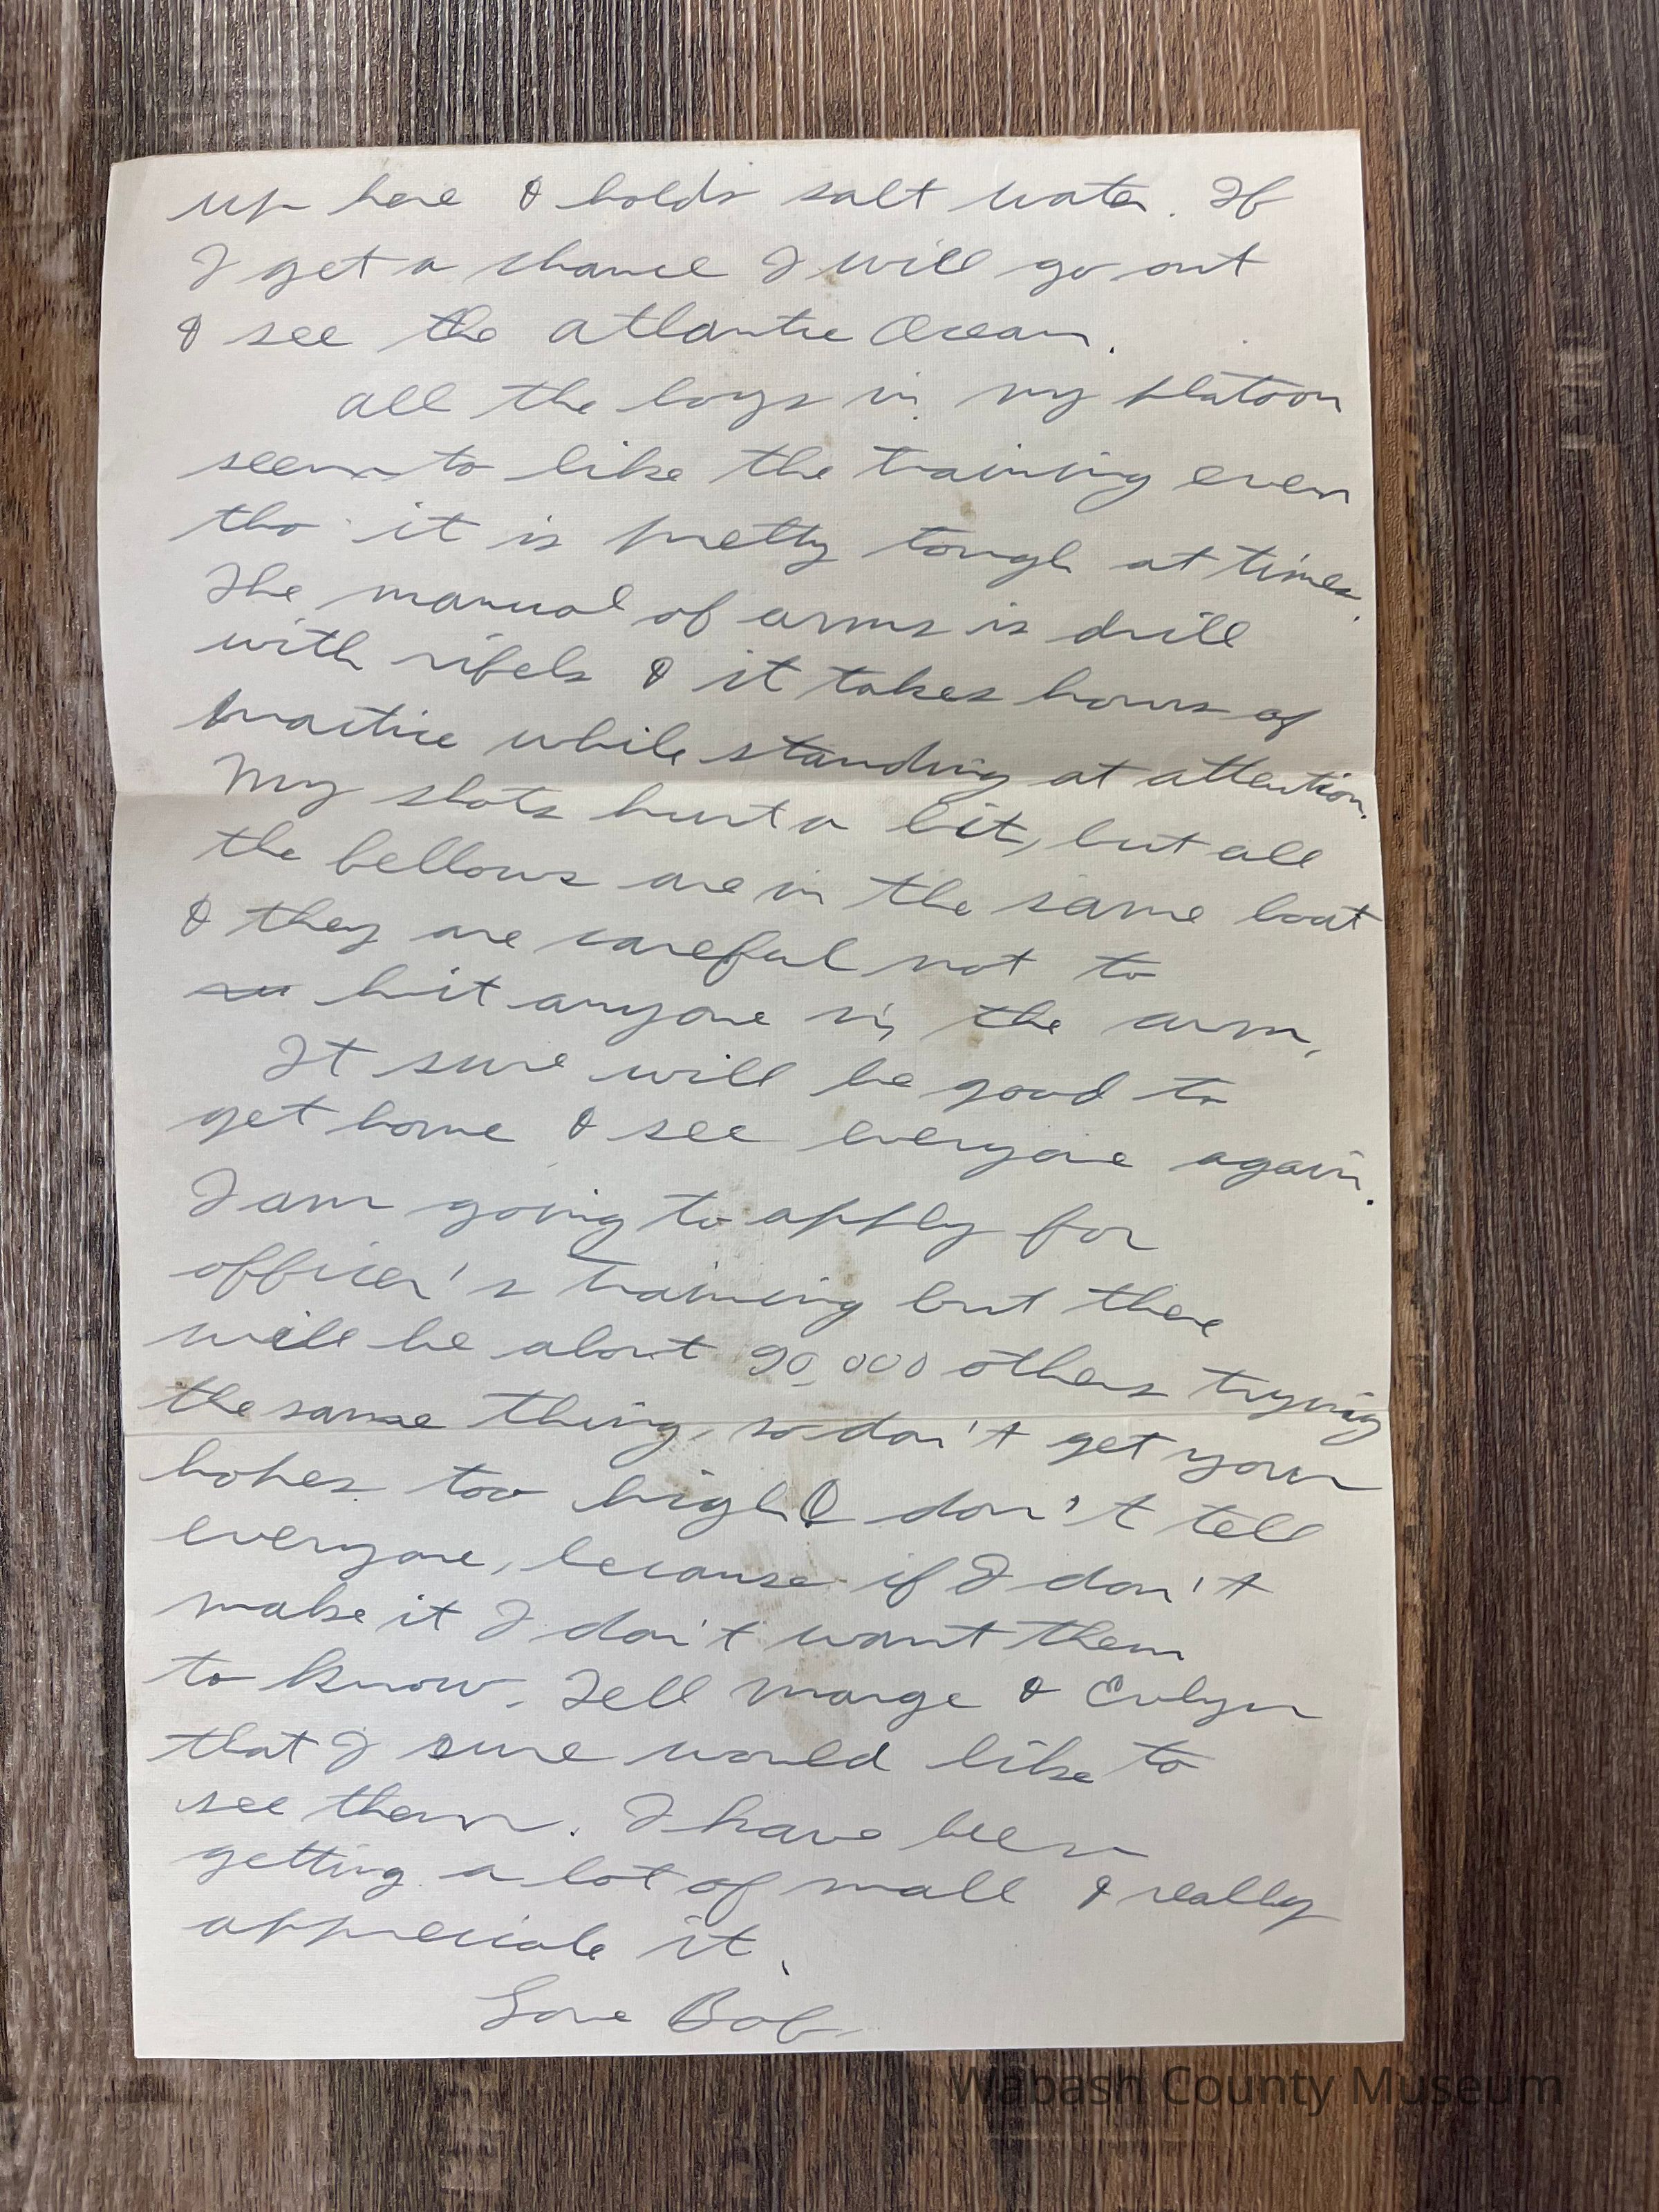 up here & holds salt water. If
I get a chance I will go out
& see the atlantic Ocean.
all the boys in my platoon
seem to like the training even
tho it is pretty tough at times.
The manual of arms is drill
with rifels & it takes hours of
practice while standing at attention.
My shots hurt a bit, but all
the fellows are in the same boat
& they are careful not to
hit anyone in the arm.
It sure will be good to
get home & see everyone again.
I am going to apply for
officer's training but there
will be about 90,000 others trying
the same thing, so don't get your
hopes too high & don't tell
everyone, because if I don't
make it I don't want them
to know. Tell Marge & Evlyn
that I sure would like to
see them. I have been
getting a lot of mail & really
appreciate it.
Love Bob
Wabash County Museum